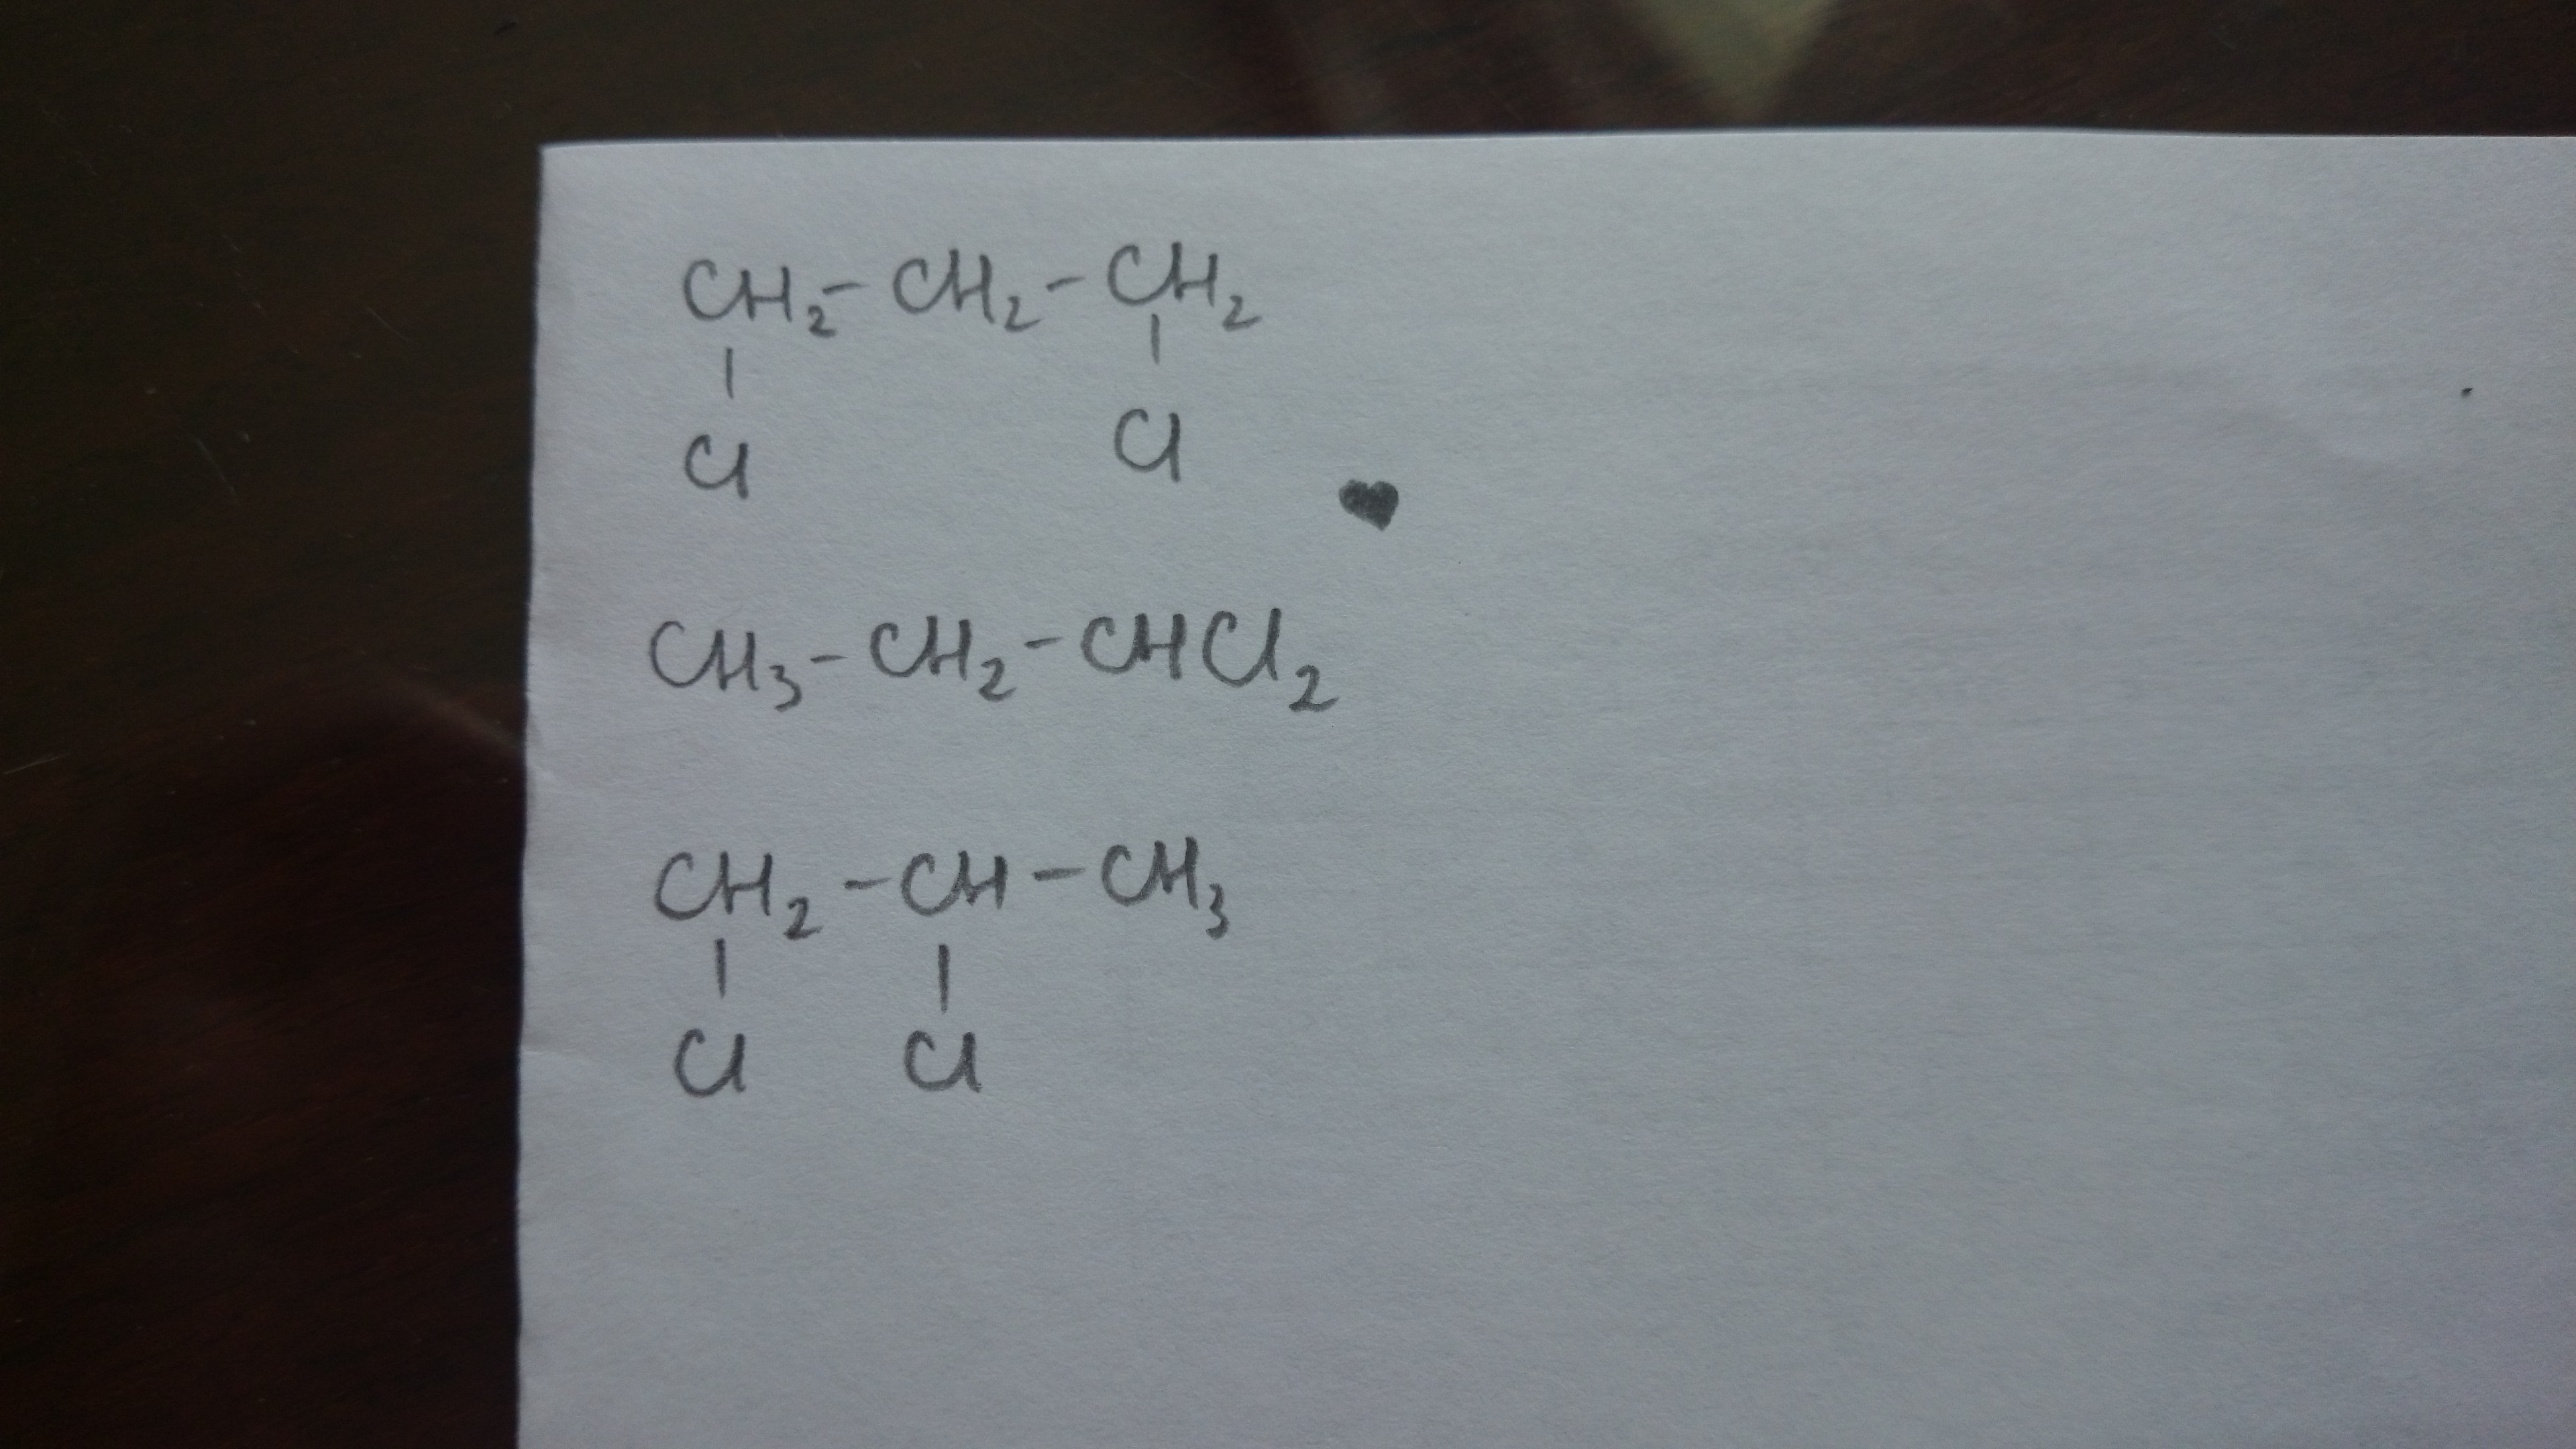 CH₂-CH₂-CH₂
| |
Cl Cl
CH₃-CH₂-CHCl₂
CH₂-CH-CH₃
| |
Cl Cl